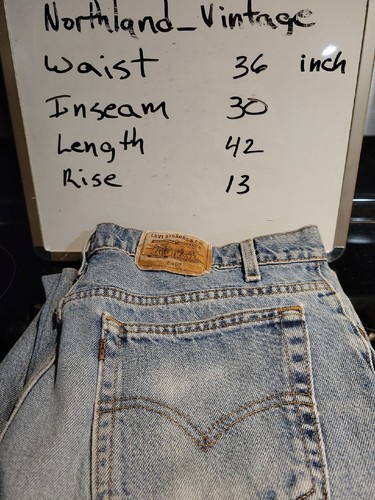 Northland_Vintage
Waist 36 inch
Inseam 30
Length 42
Rise 13
LEVI STRAUSS & CO